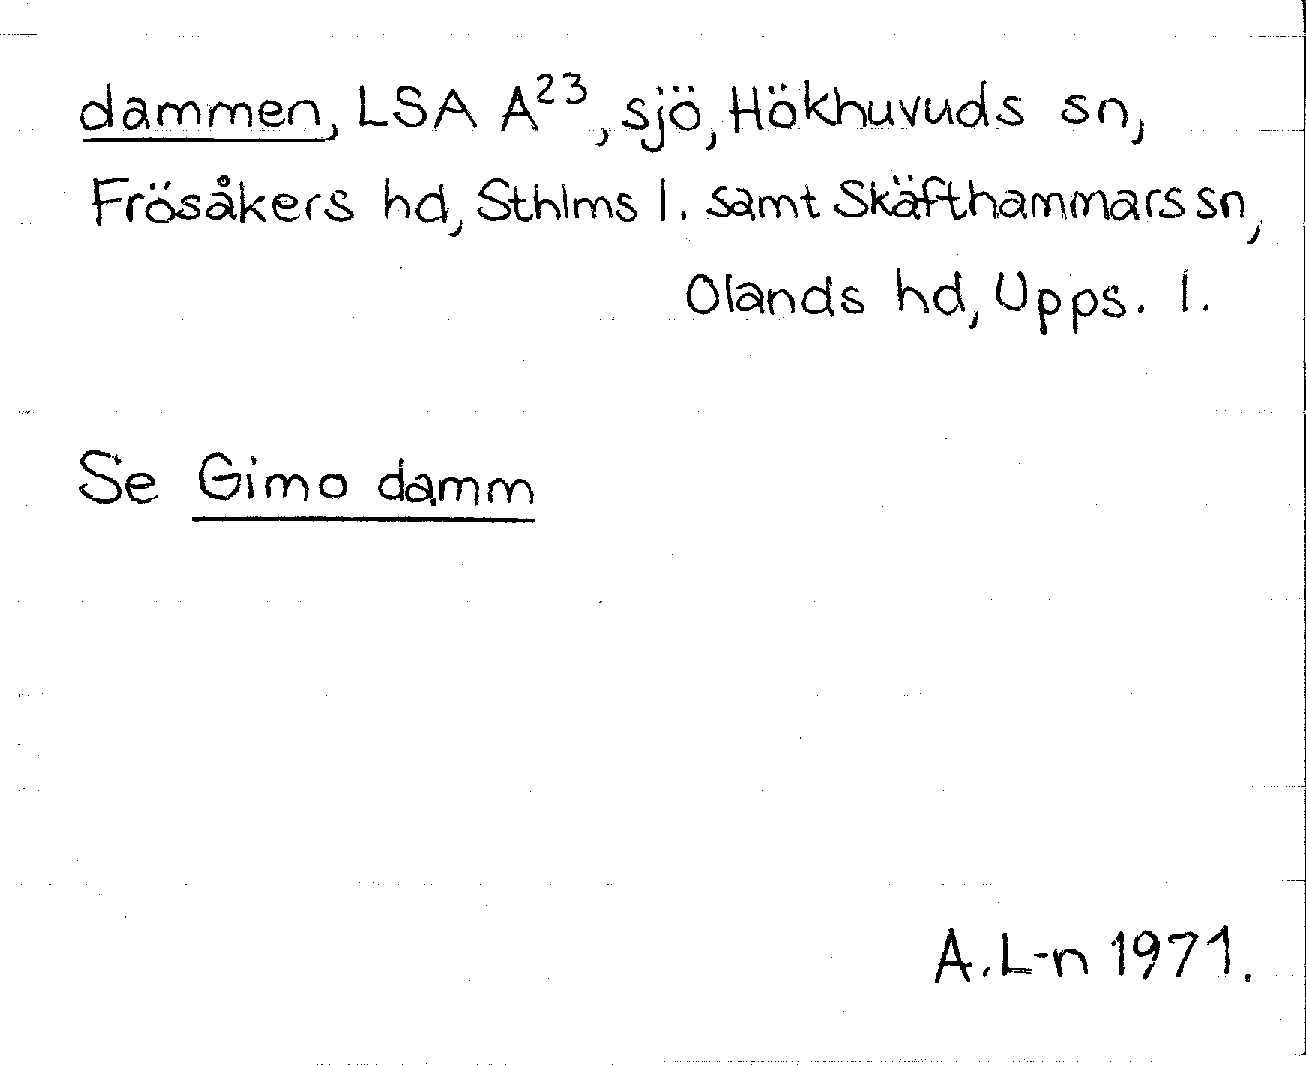 dammen, LSA A²³, sjö, Hökhuvuds sn,
Frösåkers hd, Sthlms l. samt Skäfthammars sn,
Olands hd, Upps. l.
Se Gimo damm
A. L-n 1971.